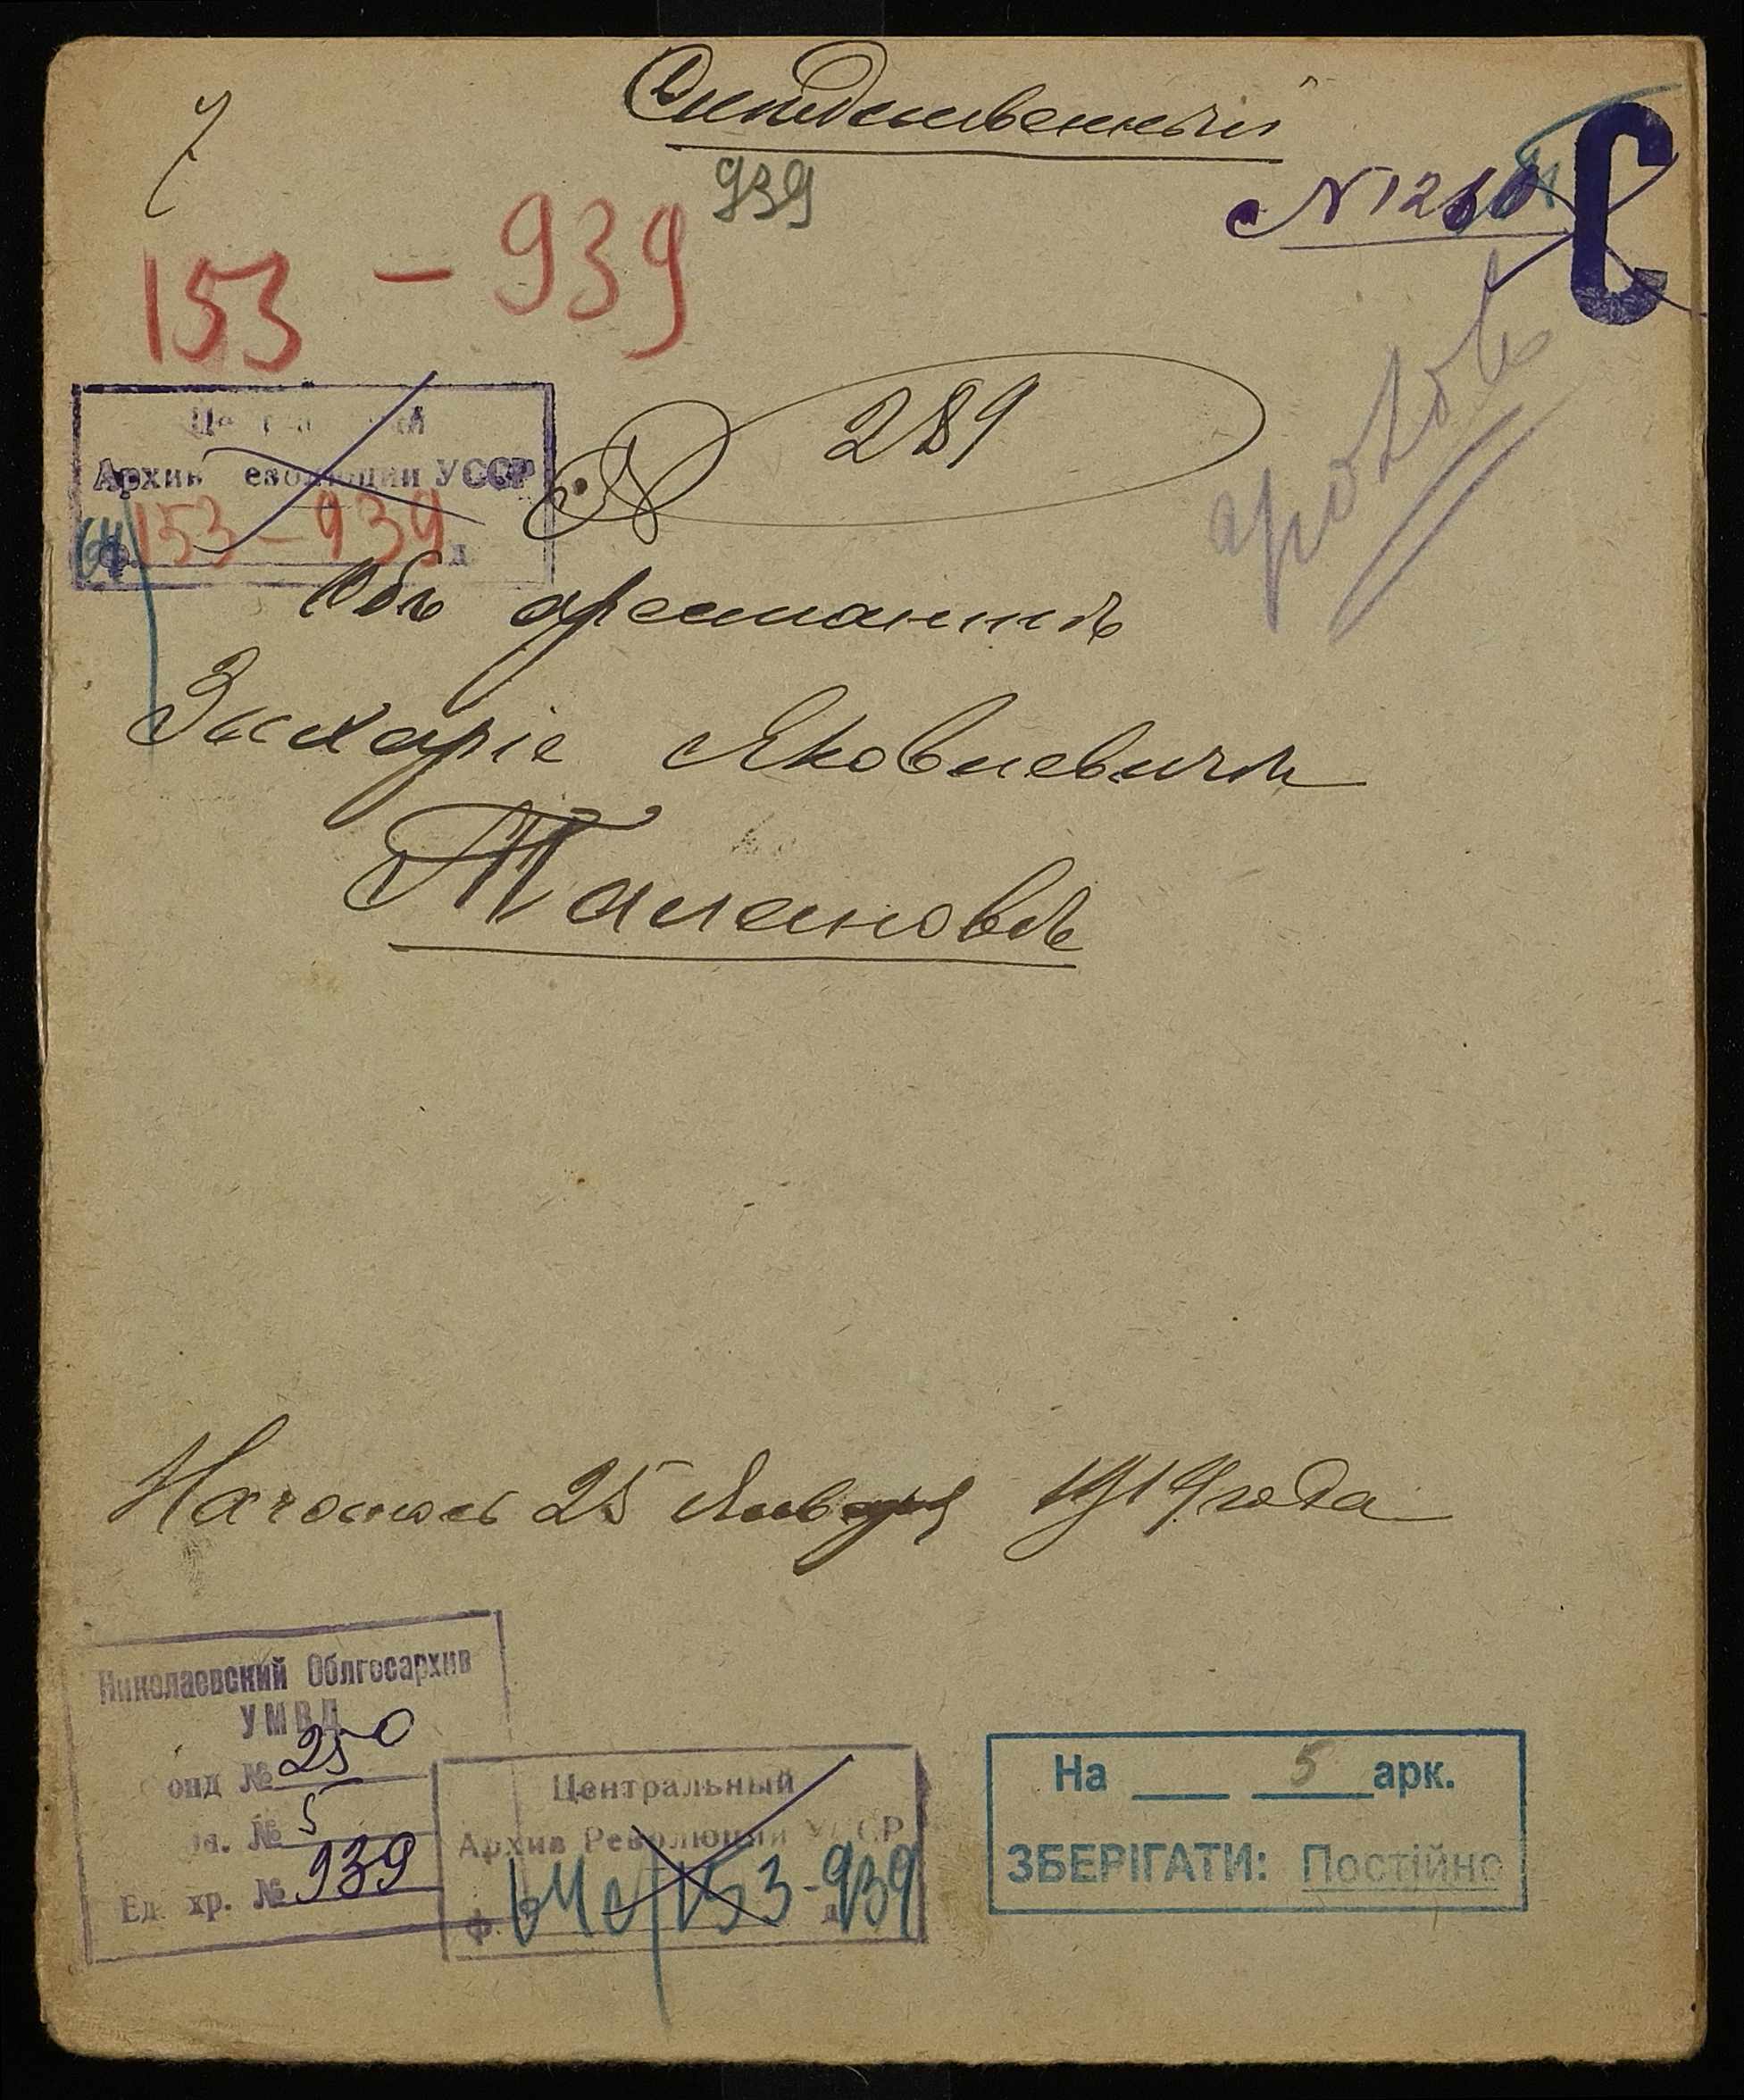 Слѣдственный
7
939
№ 1260
С
153 – 939
№ 289
Центральный
Архив Революции УССР
Ф. 153 – 939 д
Объ арестантѣ
Захаріе Яковлевичѣ
Талановѣ
Началось 25 Января 1919 года
Николаевский Облгосархив
УМВД
Фонд № 250
Оп. № 5
Ед. хр. № 939
Центральный
Архив Революции УССР
Ф. 64с/153-939 д
На 5 арк.
ЗБЕРІГАТИ: Постійно